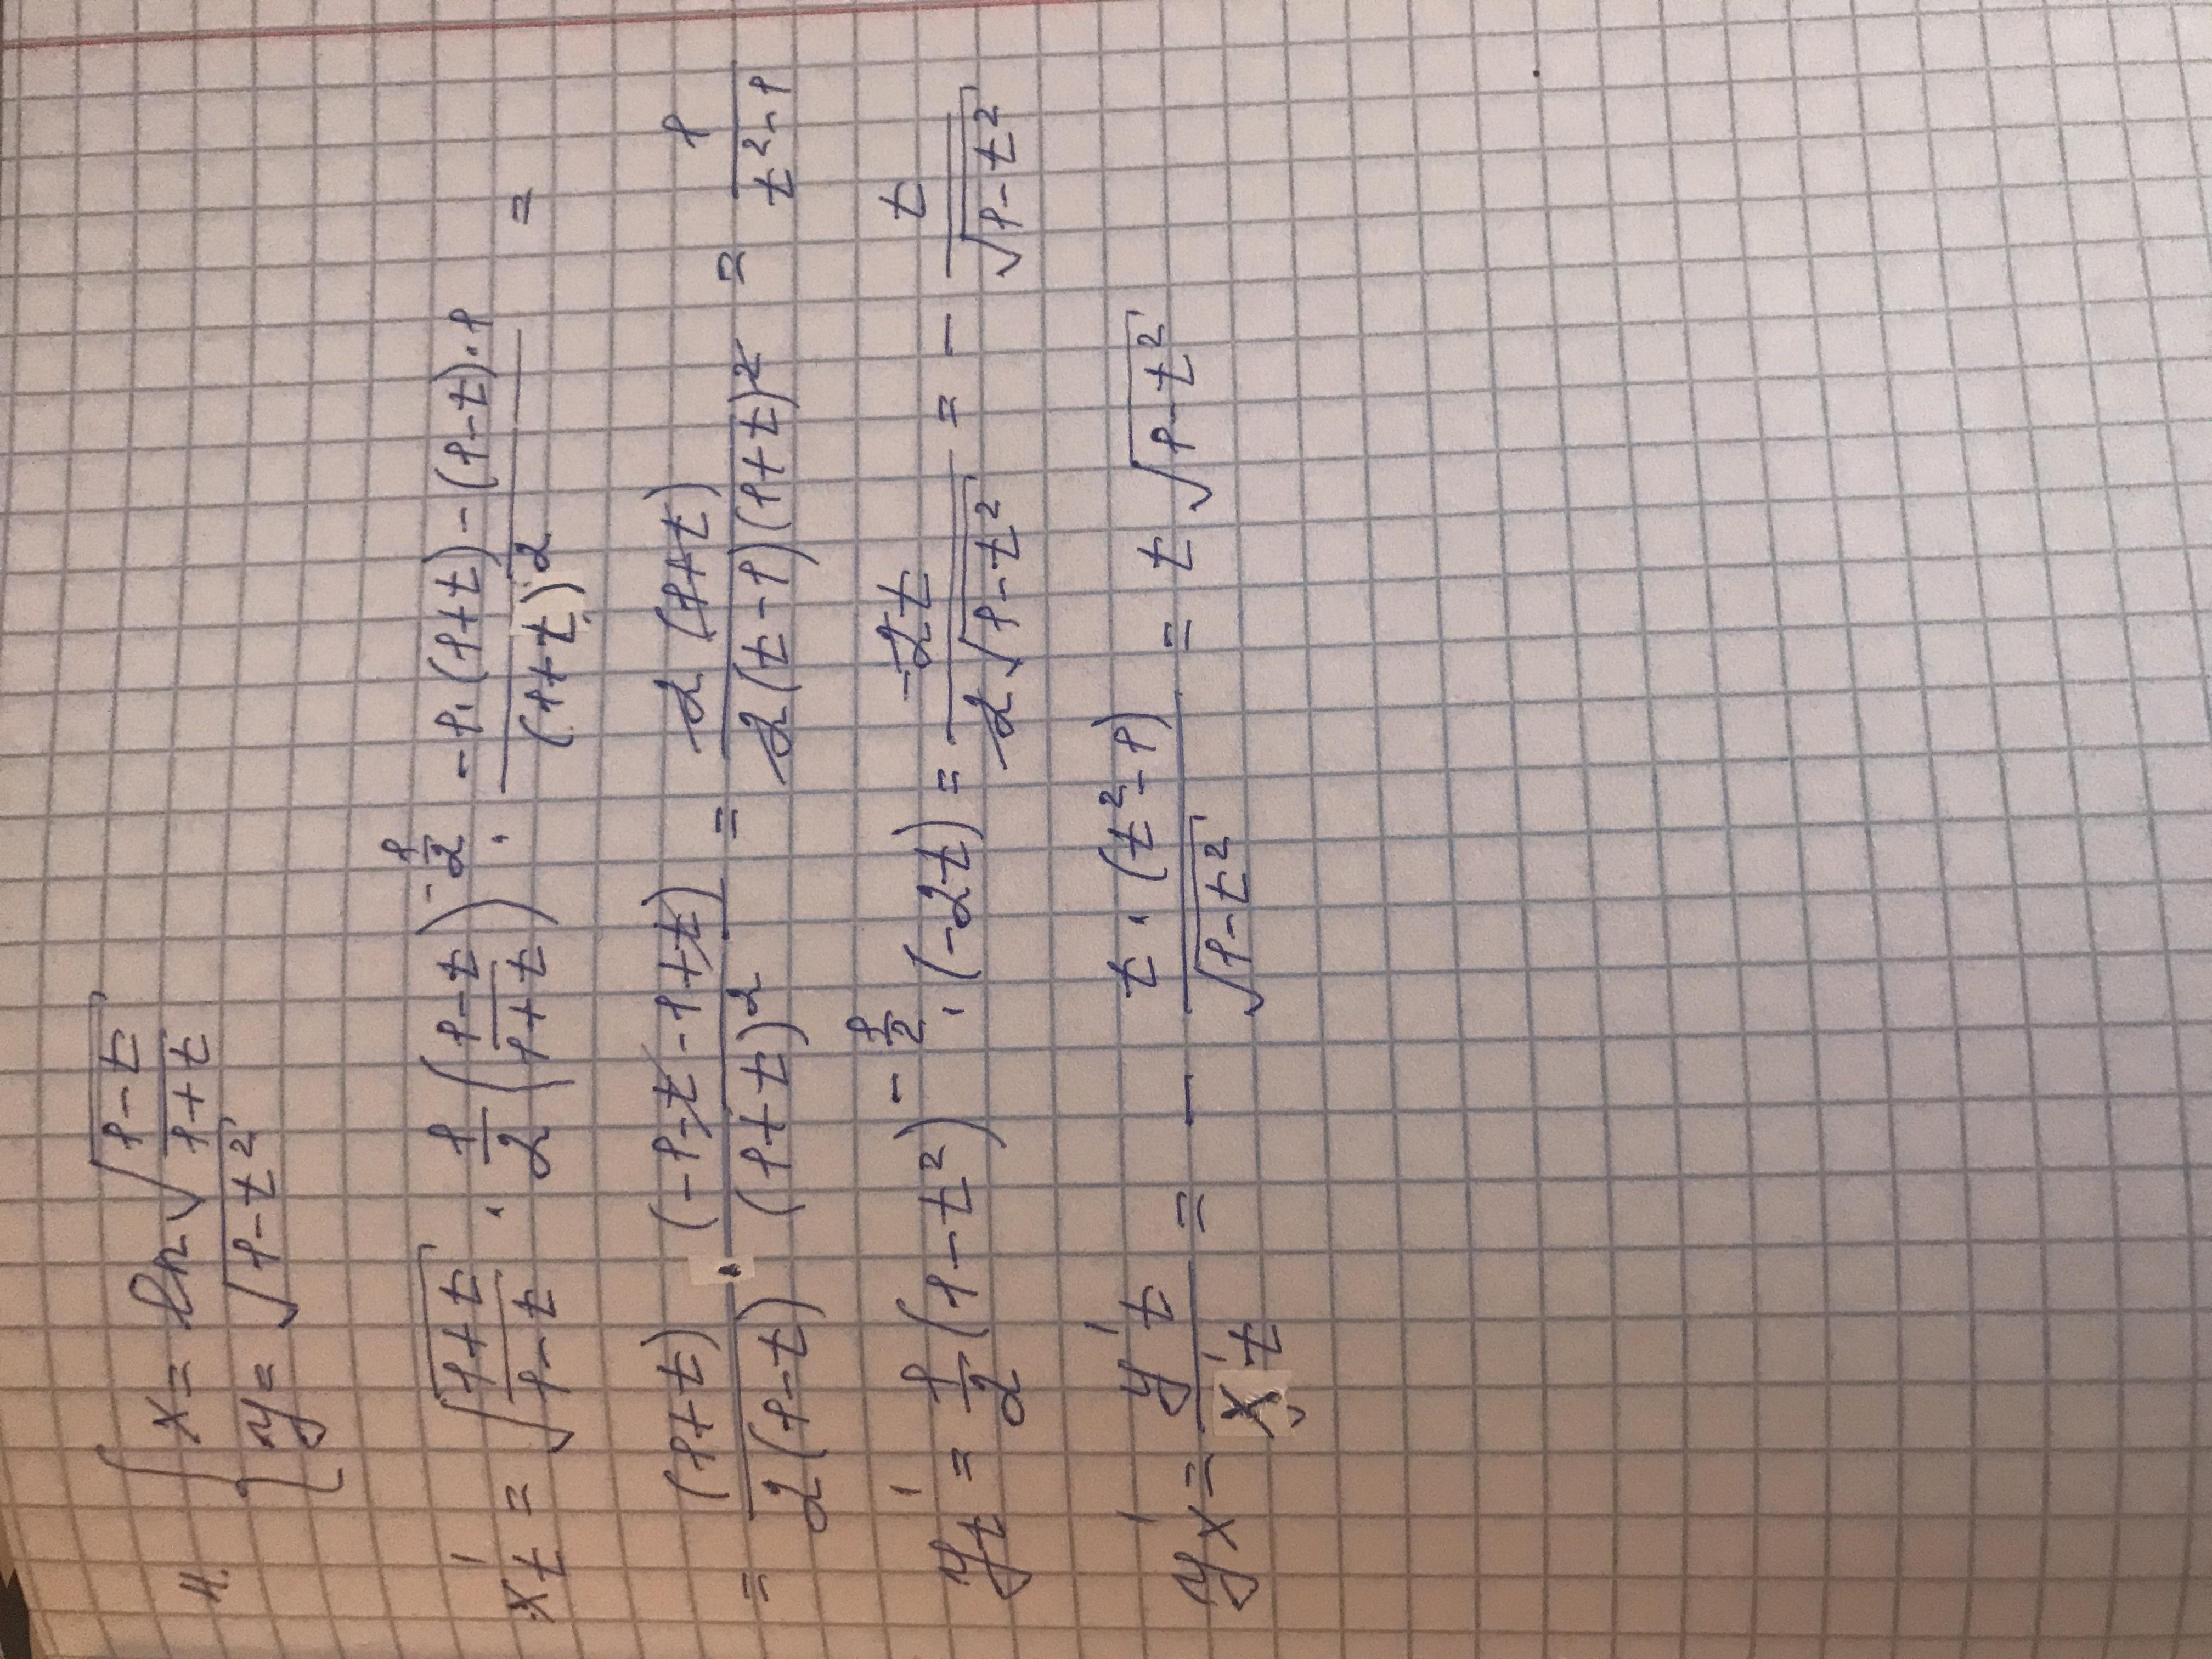 4. { x = ln √((1-t)/(1+t))
y = √(1-t²)
x't = √((1+t)/(1-t)) · 1/2 ((1-t)/(1+t))^(-1/2) · (-1·(1+t)-(1-t)·1)/(1+t)² =
= (1+t)/(2(1-t)) · (-1-t-1+t)/(1+t)² = 2(1+t)/(2(t-1)(1+t)²) = 1/(t²-1)
y't = 1/2 (1-t²)^(-1/2) · (-2t) = -2t/(2√(1-t²)) = - t/√(1-t²)
y'x = y't/x't = - t·(t²-1)/√(1-t²) = t√(1-t²)